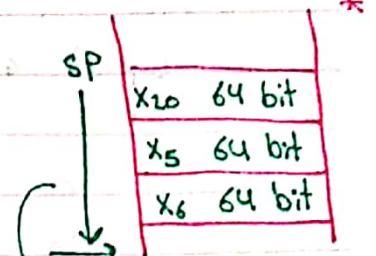 SP
x20 64 bit
x5 64 bit
x6 64 bit